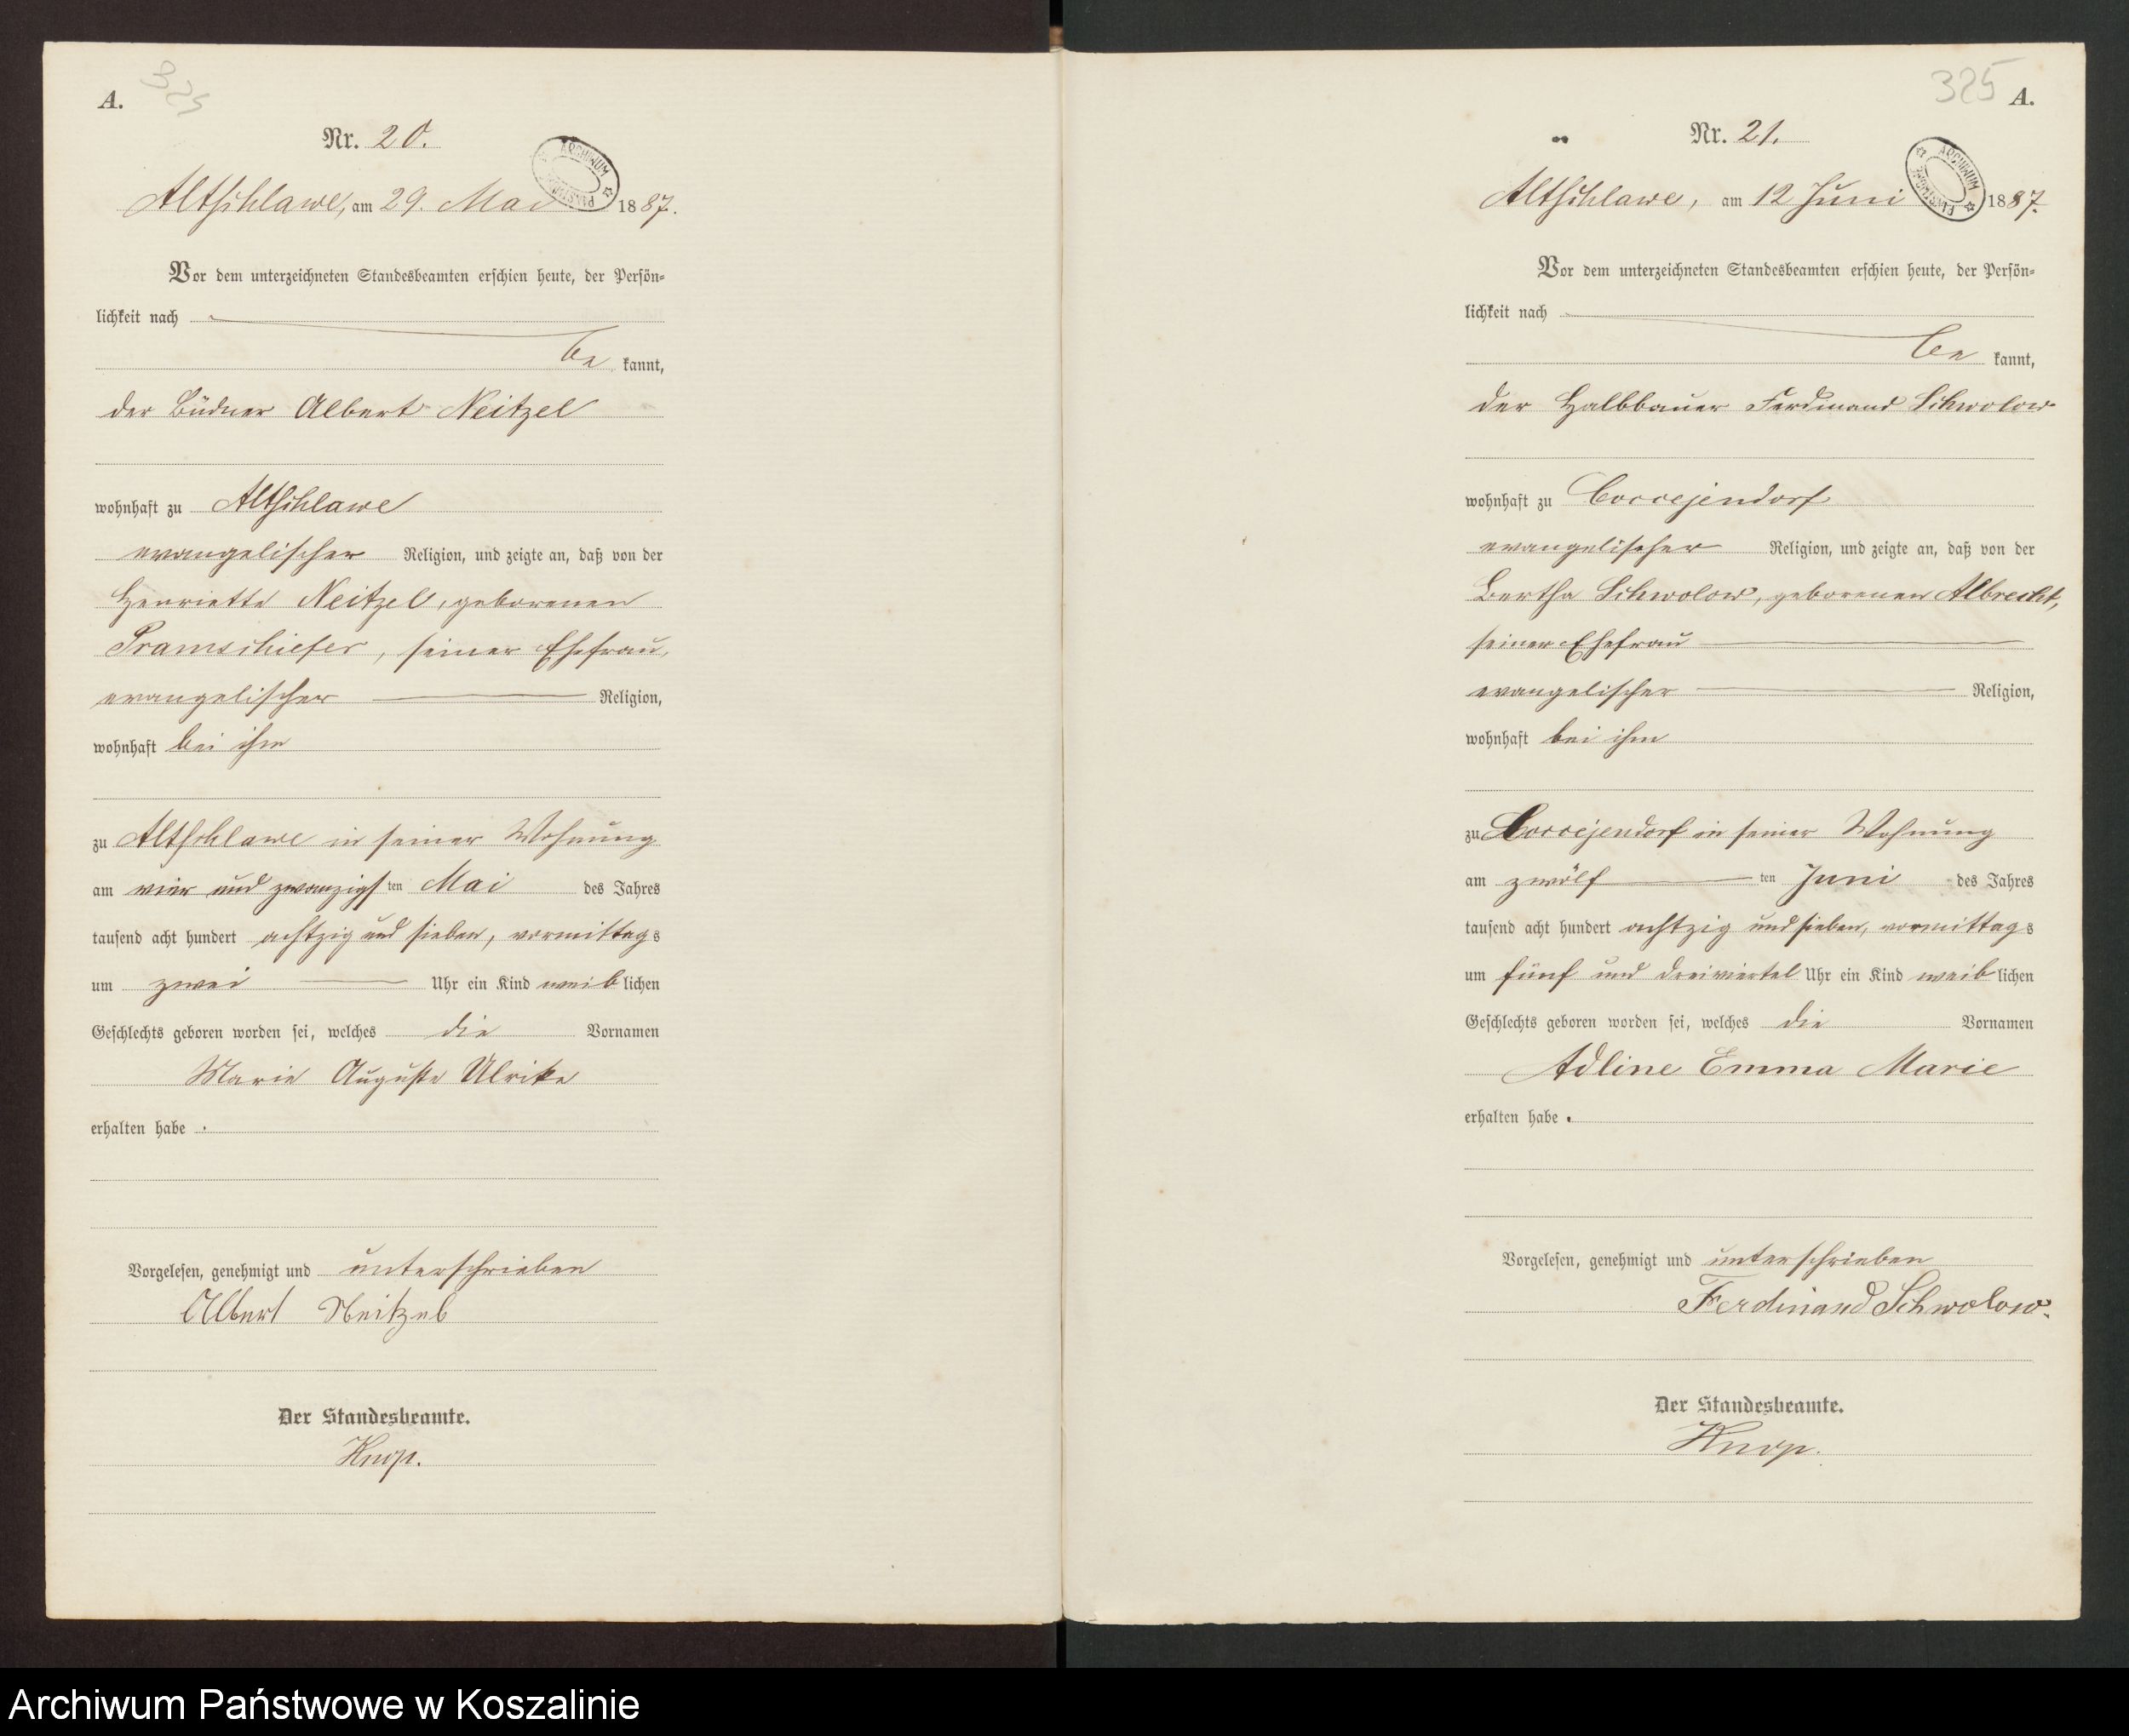 A.
325
Nr. 20.
ARCHIWUM PAŃSTWOWE
Altschlawe, am 29. Mai 1887.
Vor dem unterzeichneten Standesbeamten erschien heute, der Persön-
lichkeit nach
be kannt,
der Büdner Albert Neitzel
wohnhaft zu Altschlawe
evangelischer Religion, und zeigte an, daß von der
Henriette Neitzel, geborenen
Pramschiefer, seiner Ehefrau,
evangelischer Religion,
wohnhaft bei ihm
zu Altschlawe in seiner Wohnung
am vier und zwanzigsten Mai des Jahres
tausend acht hundert achtzig und sieben, vormittags
um zwei Uhr ein Kind weiblichen
Geschlechts geboren worden sei, welches die Vornamen
Marie Auguste Ulrike
erhalten habe.
Vorgelesen, genehmigt und unterschrieben
Albert Neitzel
Der Standesbeamte.
Knop.
325 A.
Nr. 21.
ARCHIWUM PAŃSTWOWE
Altschlawe, am 12 Juni 1887.
Vor dem unterzeichneten Standesbeamten erschien heute, der Persön-
lichkeit nach
be kannt,
der Halbbauer Ferdinand Schwolow
wohnhaft zu Coccejendorf
evangelischer Religion, und zeigte an, daß von der
Bertha Schwolow, geborenen Albrecht,
seiner Ehefrau
evangelischer Religion,
wohnhaft bei ihm
zu Coccejendorf in seiner Wohnung
am zwölf ten Juni des Jahres
tausend acht hundert achtzig und sieben, vormittags
um fünf und dreiviertel Uhr ein Kind weiblichen
Geschlechts geboren worden sei, welches die Vornamen
Adline Emma Marie
erhalten habe.
Vorgelesen, genehmigt und unterschrieben
Ferdinand Schwolow.
Der Standesbeamte.
Knop.
Archiwum Państwowe w Koszalinie